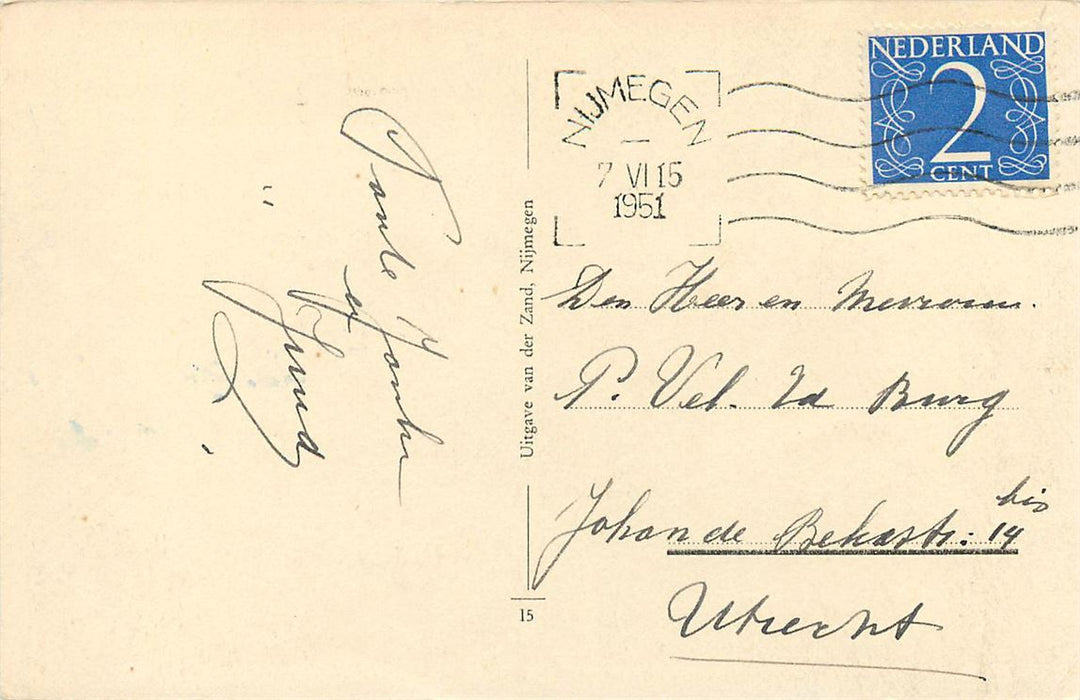 NEDERLAND
2
CENT
NIJMEGEN
7 VI 15
1951
Tante Jonkr
en
" Truud
Uitgave van der Zand, Nijmegen
15
Den Heer en Mevrouw.
P. Vel. Vd Burg
Johan de Bekastr: 14 bis
Utrecht